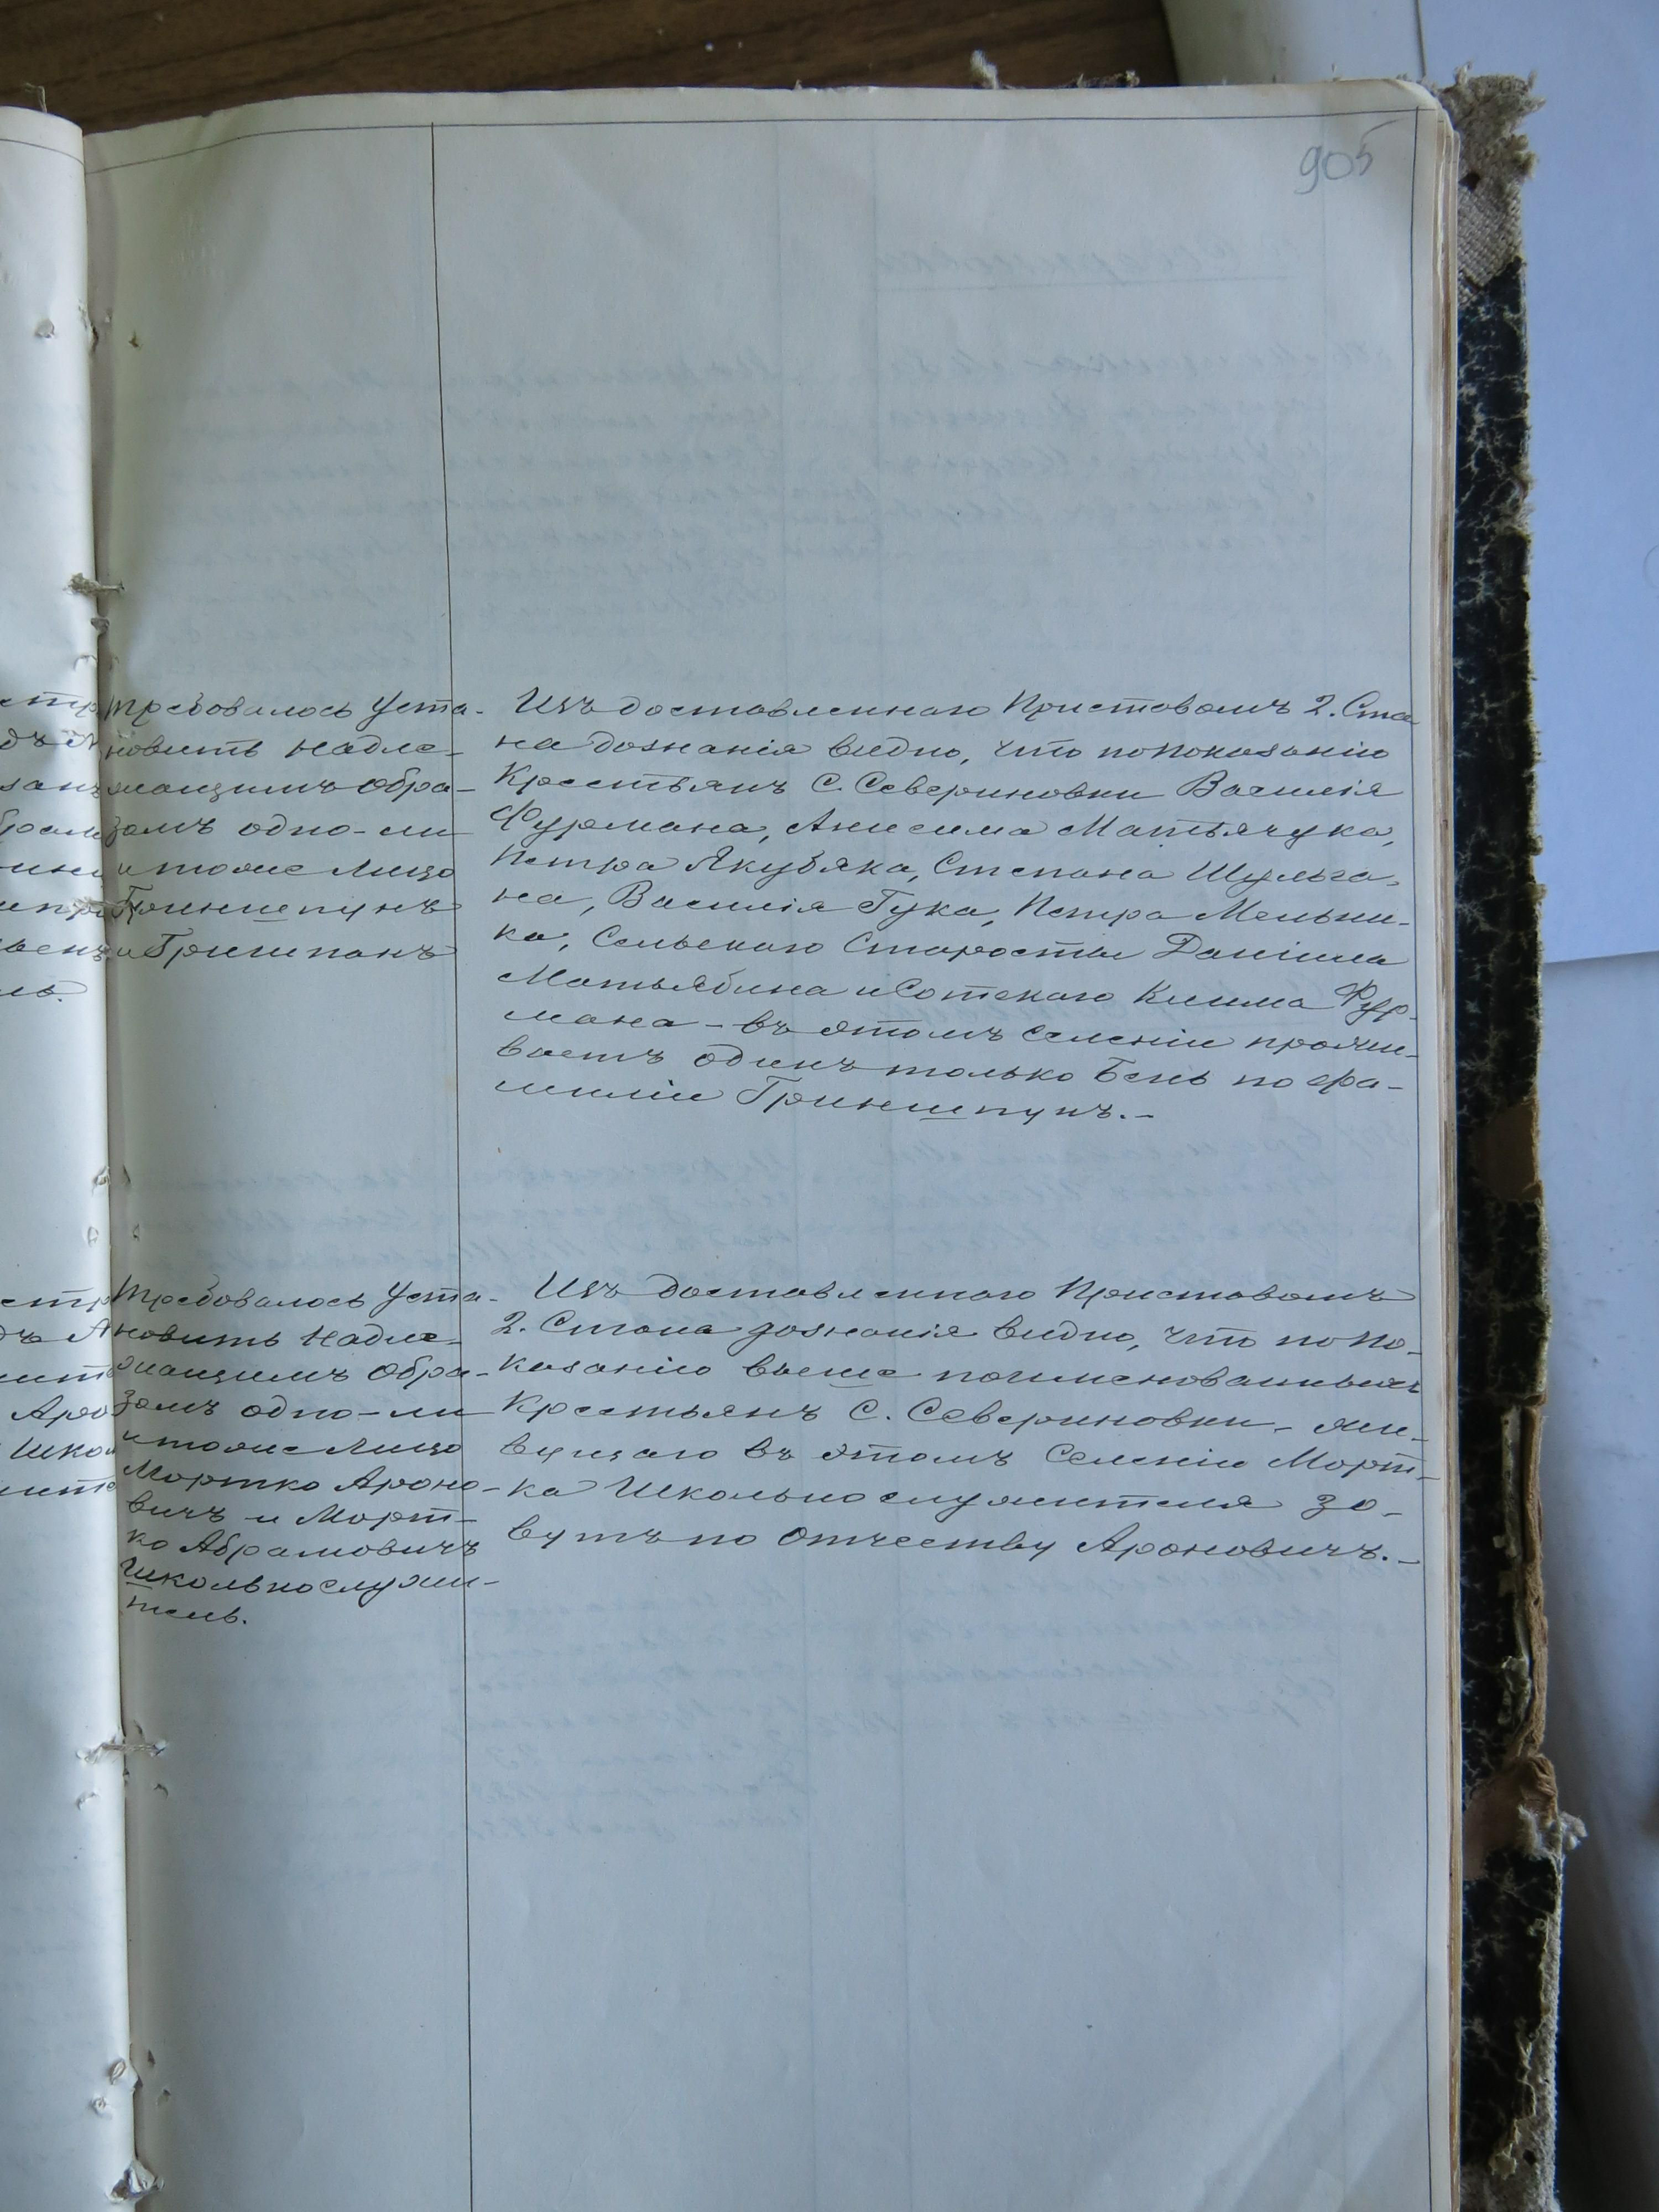 905
Требовалось Уста-
новить Надле-
жащимъ Обра-
зомъ одно-ли
и тоже Лицо
Гринше пунъ
и Гришпанъ
Изъ доставленнаго Приставомъ 2. Ста
на дознанія видно, что по показанію
Крестьянъ С. Севериновки Василія
Фурмана, Анисима Матьячука,
Петра Якубяка, Степана Шульга-
на, Василія Гука, Петра Мельни-
ка, Сельскаго Старосты Даніила
и Сотскаго Клима Фур-
мана - въ этомъ Селеніи прожи-
ваетъ одинъ только Бень по фа-
миліи Гриншпунъ.-
Требовалось Уста-
новить Надле-
жащимъ Обра-
зомъ одно-ли
и тоже Лицо
Мортко Ароно-
вичъ и Морт-
ко Абрамовичъ
Школьнослужи-
тель.
Изъ доставленнаго Приставомъ
2. Стана дознанія видно, что по по-
казанію выше поименованныхъ
Крестьянъ С. Севериновки, жи-
вущаго въ этомъ Селеніи Морт-
ка Школьнослужителя зо-
вутъ по Отчеству Ароновичъ.-